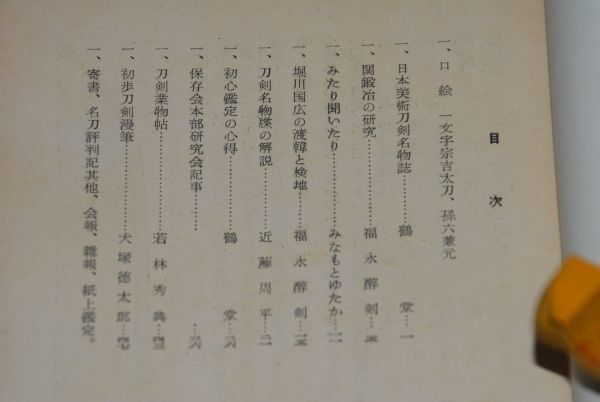 目次
一、口絵 一文字宗吉太刀、孫六兼元
一、日本美術刀剣名物誌………鶴堂…一
一、関鍛冶の研究………福永酔剣…五
一、みたり聞いたり………みなもとゆたか…一一
一、堀川国広の渡韓と検地………福永酔剣…一五
一、刀剣名物牒の解説………近藤周平…二一
一、初心鑑定の心得………鶴堂…二六
一、保存会本部研究会記事………三六
一、刀剣業物帖………若林秀典…四三
一、初歩刀剣漫筆………大塚徳太郎…四七
一、寄書、名刀評判記其他、会報、雑報、紙上鑑定。